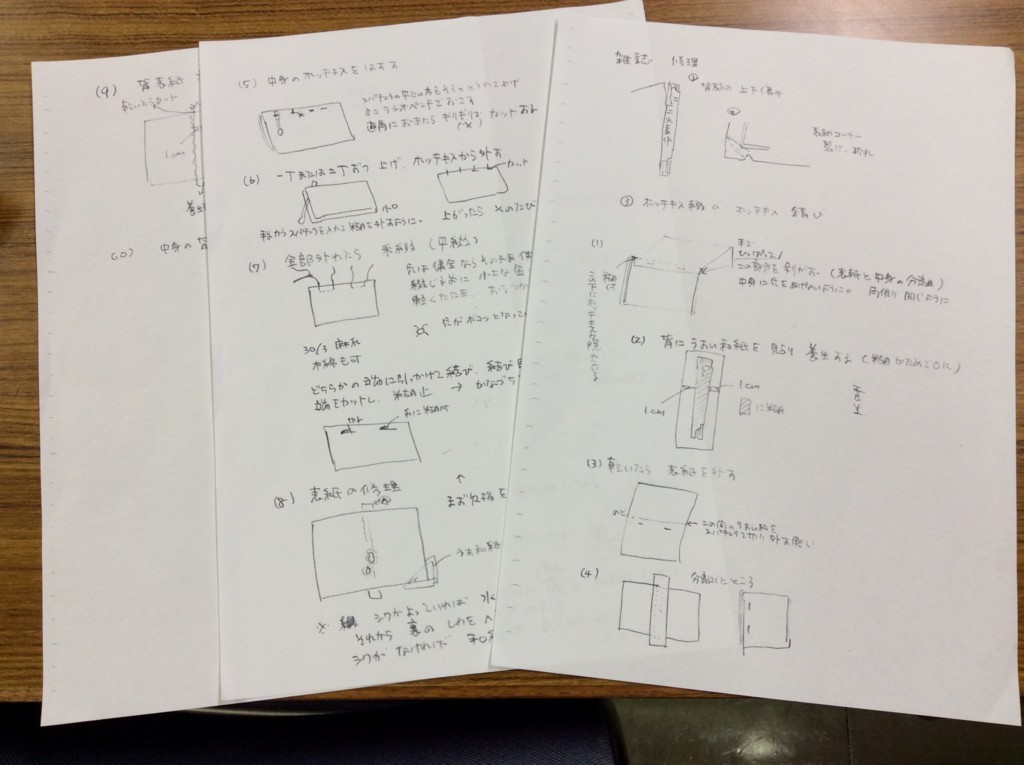 雑誌 修理
①
背表紙の上下 傷み
②
表紙コーナー
裂け、折れ
③ ホッチキス綴の ホッチキス 錆び
(1)
この下にホッチキスが隠れている
ひっぱって
この部分を剥がす。(表紙と中身の分離)
中身に穴をあけないように。両側り同じように
(2) 背にうすい和紙を貼り養生する(糊かためでOK)
1cm
1cm
に糊
養生
(3) 乾いたら 表紙を外す
のど
この間のうすい和紙を
スパチュラで切り外す感じ
(4) 分離したところ
(5) 中身のホッチキスをはずす
ミニラジオペンチでおこす
直角におきたらギリギリをカットする
(6) 一丁または二丁ずつ上げ、ホッチキスから外す
カット
小口
上がったら そのたび
(7) 全部外れたら 糸綴(平綴)
穴は健全ならそのまま使
軽くたたき、
穴がボコッとなって
30/3 麻糸
木綿も可
どちらかの端に引っかけて結び、結び目
端をカットし、糊止 → かなづち
糸に糊付
(8) 表紙の修理
まず欠損を
うす和紙
※ シワがよっていれば 水
それから 裏の しわを
シワが なければ
(9) 背表紙
乾いたらカット
1cm
養生
(10) 中身の背